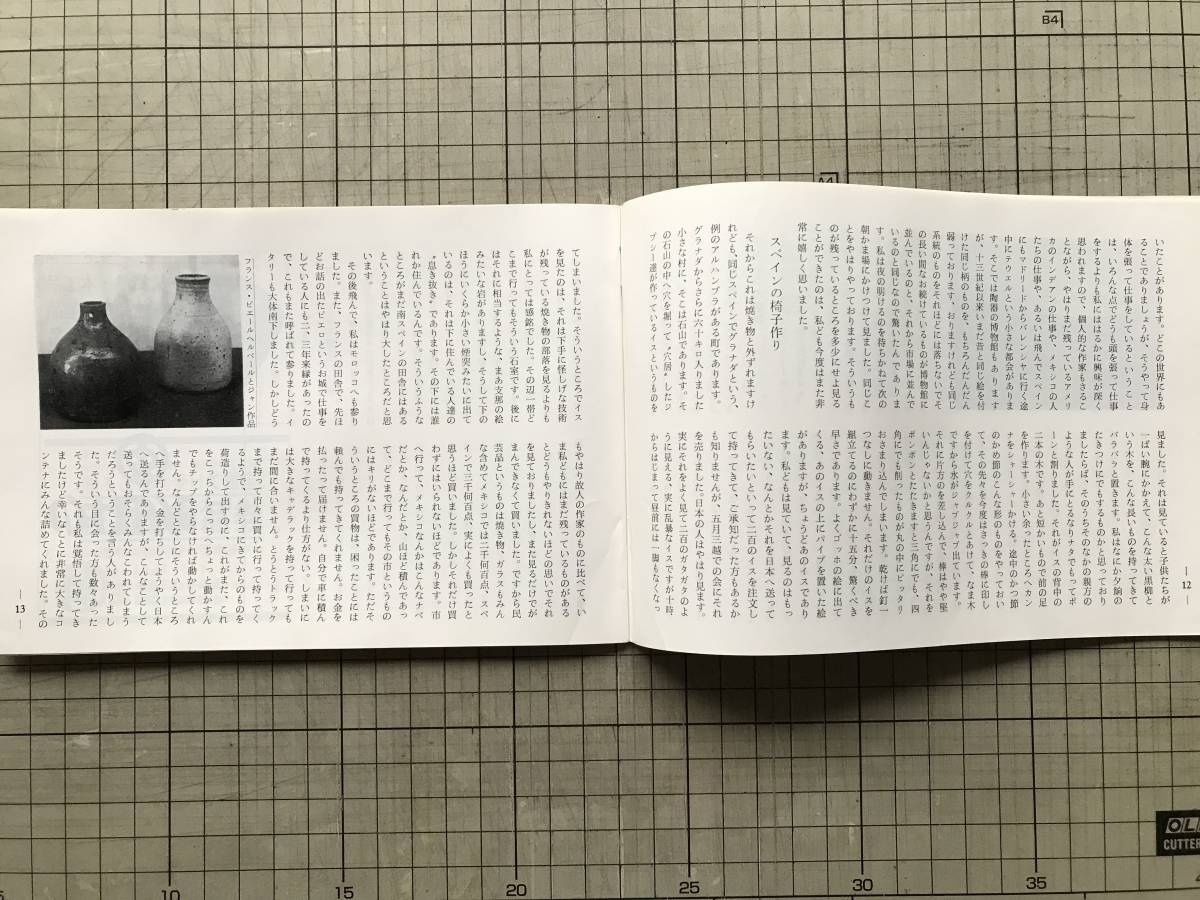 いたことがあります。どこの世界にもあ
ることでありましょうが、そうやって身
体を張って仕事をしているということ
は、いろんな点でどうも頭を張って仕事
をするよりも私にははるかに興味が深く
思われますので、個人的な作家もさるこ
とながら、やはりまだ残っているアメリ
カのインデアンの仕事や、メキシコの人
たちの仕事や、あるいは飛んでスペイン
にもマドリードからバレンシヤに行く途
中にテウエルという小さな都会がありま
す。そこでは陶器の博物館もありました
が、十三世紀以来いまだ昔と同じ絵を付
けた同じ柄のものを、もちろんだんだん
弱っております、おりますけれども同じ
系統のものをそれほどには落ちないでそ
の長い間なお続けているものが博物館に
並んでいるのと、それから市場に並んで
いるのと同じなので驚いたんでありま
す。私は夜の明けるのを待ちかねて次の
朝かま場にかけつけて見ました。同じこ
とをやはりやっております。そういうも
のが残っているところを多少にせよ見る
ことができたのは、私ども今度はまた非
常に嬉しく思いました。
スペインの椅子作り
それからこれは焼き物と外ずれますけ
れども、同じスペインでグラナダという、
例のアルハンブラがある町であります。
グラナダからさらに六十キロ入りました
小さな村に、そこは石山であります。そ
の石山の中へ穴を掘って〝穴居〟したジ
プシー達が作っているイスというものを
見ました。それは見ていると子供たちが
一ぱい腕にかかえて、こんな太い黒柳と
いう木を、こんな長いものを持ってきて
バラバラと置きます。私はなにか夕餉の
たきつけにでもするものかと思っており
ましたらば、そのうちそのなかの親方の
ような人が手にとるなりナタでもってポ
ーンと割りました。それがイスの背中の
二本の木です。あと短かいもので前の足
を作ります。小さい余ったところへカン
ナをシャーシャーかける。途中のかつ節
のかめ節のこんな形のものをやっておい
て、その先々を今度はさっきの棒に印し
を付けて穴をクルクルとあけて、なま木
ですから水がジャブジャブ出ています。
それに片方のを差し込んで、棒はやや堅
いんじゃないかと思うんですが、それを
ポンポンとたたきますと三角にでも、四
角にでも削ったものが丸の中にピッタリ
おさまり込んでしまいます。乾けば釘一
つなしに動きません。それだけのイスを
組立てるのにわずかに十五分、驚くべき
早さであります。よくゴッホの絵に出て
くる、あのイスの上にパイプを置いた絵
がありますが、ちょうどあのイスであり
ます。私どもは見ていて、見るのはもっ
たいない、なんとかそれを日本へ送って
もらいたいといって二百のイスを注文し
て持ってきて、ご承知だった方もあるか
も知りませんが、五月三越での会にそれ
を売りました。日本の人はやはり見ます。
実にそれをよく見て二百のガタガタのよ
うに見える、実に乱暴なイスですが十時
からはじまって昼前には一脚もなくなっ
— 12 —
てしまいました。そういうところでイス
を見たのは、それは下手に怪しげな技術
が残っている焼き物の部落を見るよりも
私にとっては感銘でした。その辺一帯ど
こまで行ってもそういう石室です。後に
はそれに相当するような、まあ支那の絵
みたいな岩がありますし、そうして下の
ほうにいくらか小さい煙突みたいに出て
いるのは、それは下に住んでいる人達の
〝息き抜き〟であります。その下には誰
れか住んでいるんです。そういうふうな
ところがまだ南スペインの田舎にはある
ということはやはり大したところだと思
います。
その後飛んで、私はモロッコへも参り
ました。また、フランスの田舎で、先ほ
どお話の出たピエロというお城で仕事を
している人にも二、三年来縁があったの
で、これもまた呼ばれて参りました。イ
タリーも大体南下しました。しかしどう
フランス・ピエールヘルベールとジャン作品
もやはり故人の作家のものに比べて、い
ま私どもにはまだ残っているものがある
とどうもやりきれないほどの思いでそれ
を見ておりましたし、また見るだけでが
まんできなくて買いました。ですから民
芸品というものは焼き物、ガラスもみん
な含めてメキシコでは二千何百点、スペ
インで三千何百点、実によくも買ったと
思うほど買いました。しかしそれだけ買
わずにはいられないほどであります。市
へ行って、メキシコなんかはこんなナベ
だとか、なんだとか、山ほど積んであっ
て、どこまで行ってもその市というもの
にはキリがないほどであります。ただそ
ういうところの買物は、困ったことには
頼んでも持ってきてくれません。お金を
払ったって届けません。自分で車に積ん
で持ってくるより仕方がない。しまいに
は大きなキャデラックを持って行っても
まだ間に合いません。とうとうトラック
まで持って市々に買いに行って持ってく
るようで、メキシコにきてからのものを
荷造りして出すのに、これがまた、これ
をこっちからこっちへちょっと動かすん
でもチップをやらなければ動かしてくれ
ません。なんどとなしにそういうところ
へ手を打ち、金を打ちしてようやく日本
へ送るんでありますが、こんなことして
送ってもおそらくみんなこわれてしまう
だろうということを言う人がありまし
た。そういう目に会った方も数々あった
そうです。それも私は覚悟して持ってき
ましたけれど幸いなことに非常に大きなコ
ンテナにみんな詰めてくれました。その
— 13 —
B4
A4
10
15
20
25
30
35
OL
CUTTER